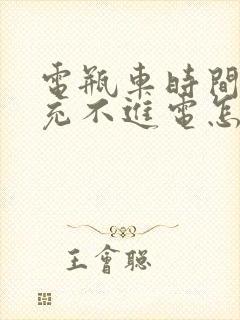 電瓶車時間
充不進電怎
王會聰